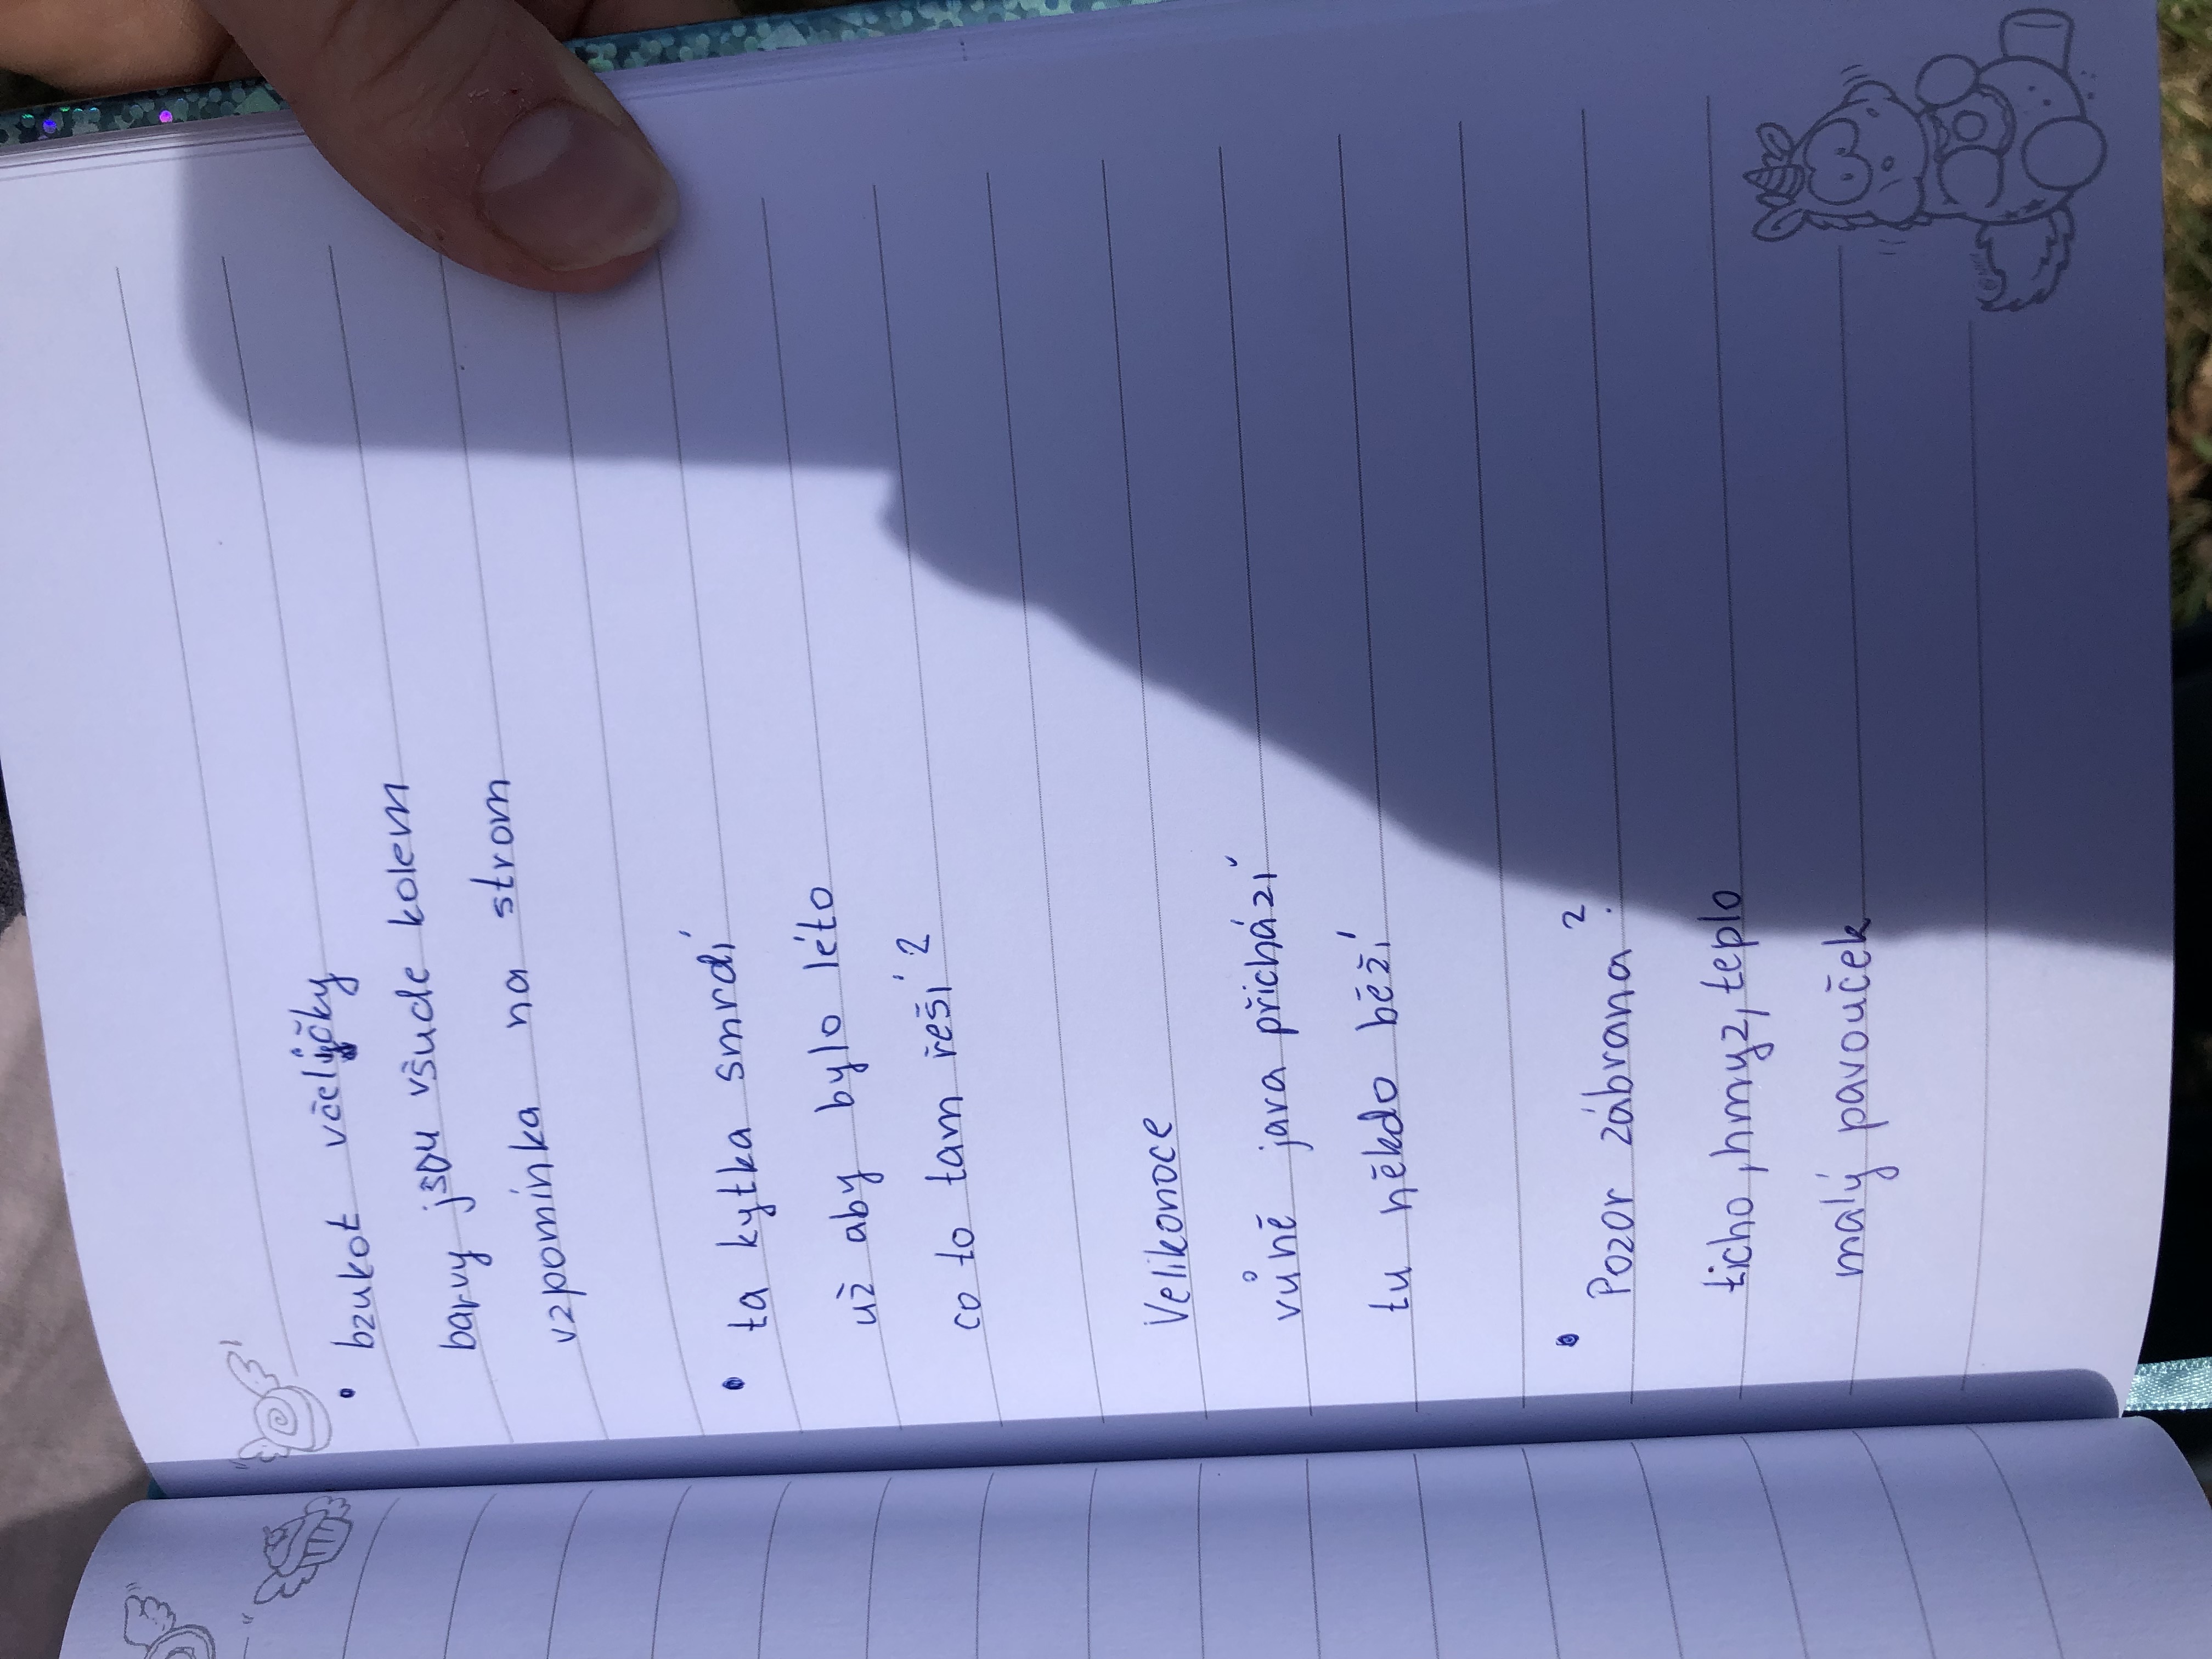 • bzukot včeličky
barvy jsou všude kolem
vzpomínka na strom
• ta kytka smrdí
už aby bylo léto
co to tam řeší ?
Velikonoce
vůně jara přichází
tu někdo běží
• Pozor zábrana ?
ticho, hmyz, teplo
malý pavouček